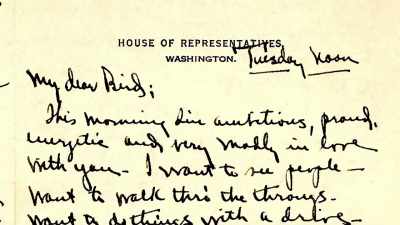 HOUSE OF REPRESENTATIVES
WASHINGTON.
Tuesday Noon
My dear Bird;
This morning I'm ambitious, proud,
energetic and very madly in love
with you — I want to see people —
want to walk thro the throngs —
want to do things with a drive —